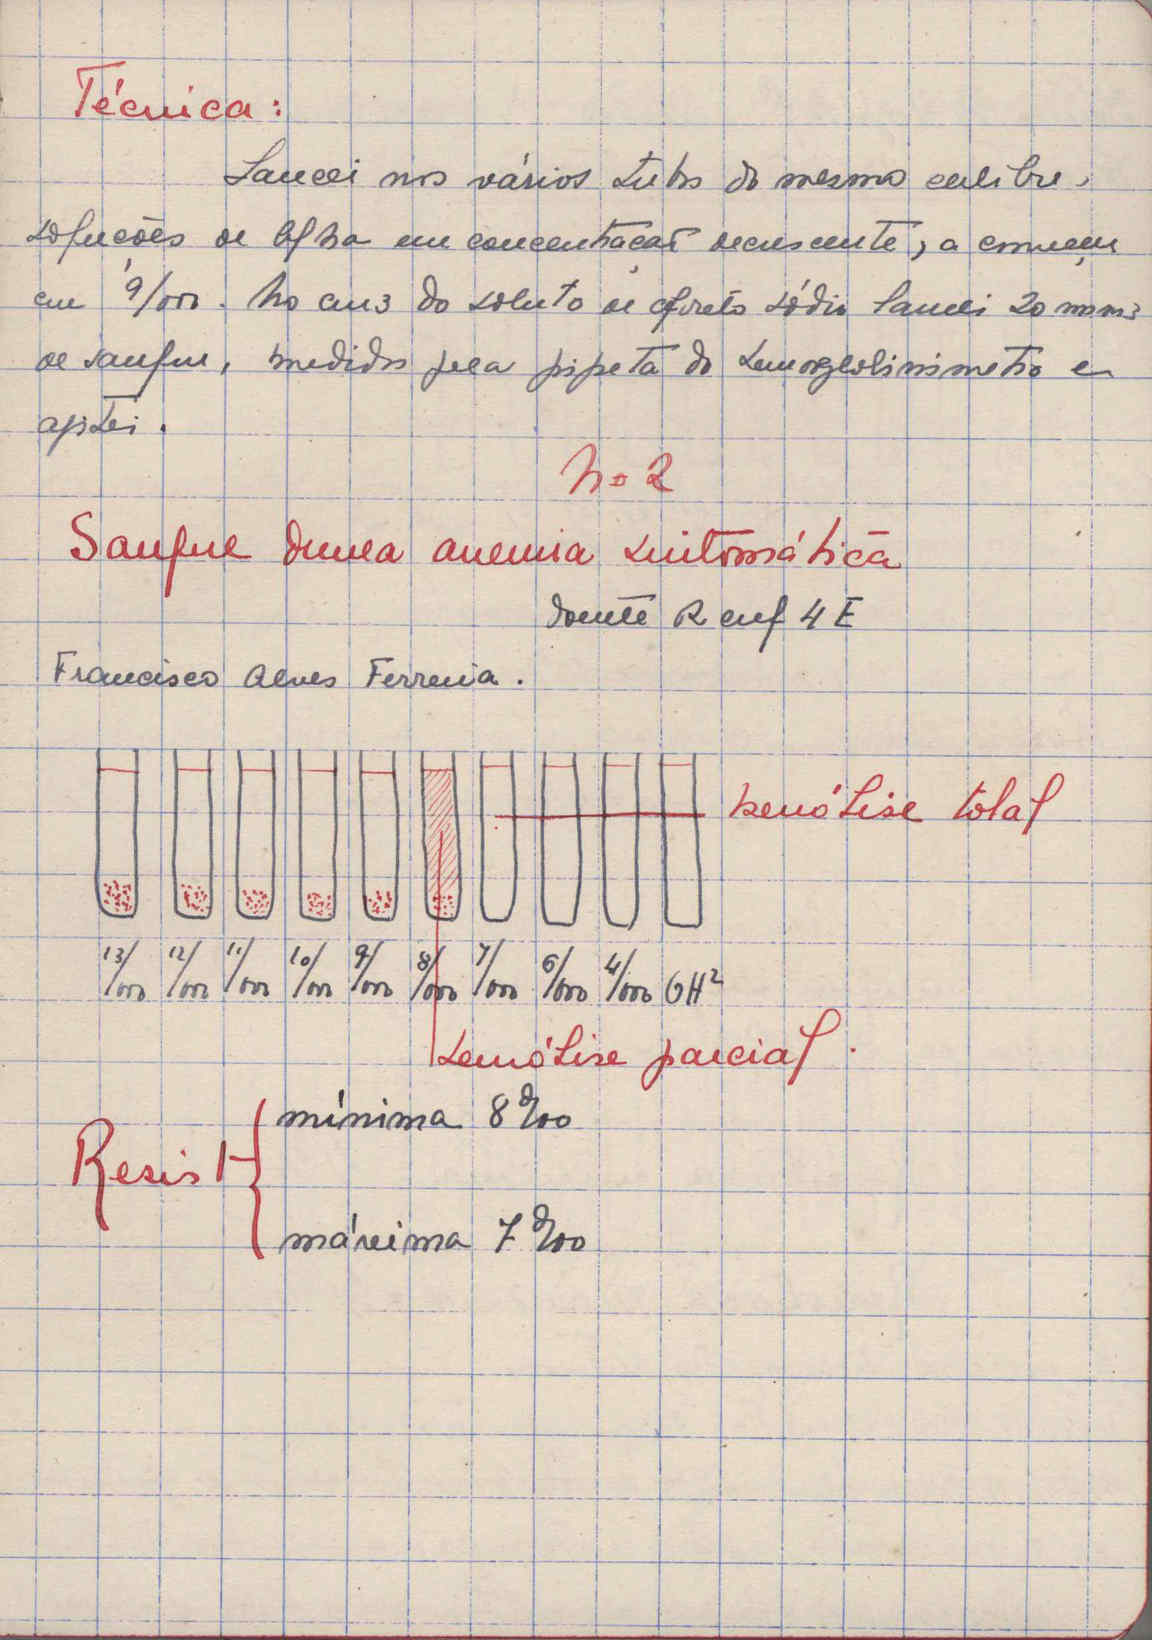 Técnica:
Lancei nos vários tubos do mesmo calibre,
soluções de ClNa em concentração decrescente, a começar
em 9/000. No cm3 do soluto de cloreto sódio lancei 20 mm3
de sangue, medidos pela pipeta do hemoglobinimetro e
agitei.
No 2
Sangue duma anemia sintomática
doente R enf 4 E
Francisco Alves Ferreira.
hemólise total
13/000 12/000 11/000 10/000 9/000 8/000 7/000 6/000 4/000 OH²
hemólise parcial.
Resist
mínima 8 %00
máxima 7 %00